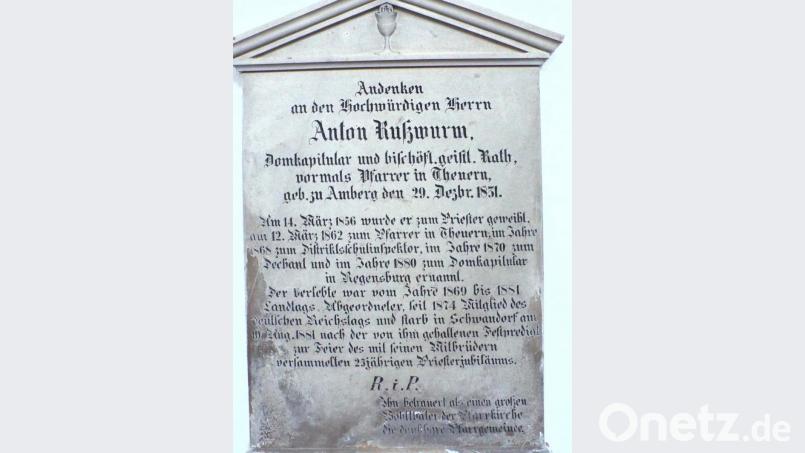 Andenken
an den Hochwürdigen Herrn
Anton Rußwurm,
Domkapitular und bischöfl. geistl. Rath,
vormals Pfarrer in Theuern,
geb. zu Amberg den 29. Dezbr. 1831.
Am 14. März 1856 wurde er zum Priester geweiht,
am 12. März 1862 zum Pfarrer in Theuern, im Jahre
1868 zum Distriktsschulinspektor, im Jahre 1870 zum
Dechant und im Jahre 1880 zum Domkapitular
in Regensburg ernannt.
Der Verlebte war vom Jahre 1869 bis 1881
Landtags-Abgeordneter, seit 1874 Mitglied des
deutschen Reichstags und starb in Schwandorf am
Aug. 1881 nach der von ihm gehaltenen Festpredigt
zur Feier des mit seinen Mitbrüdern
versammelten 25jährigen Priesterjubiläums.
R.i.P.
Ihn betrauert als einen großen
Wohlthäter der Pfarrkirche
die dankbare Pfarrgemeinde.
Onetz.de